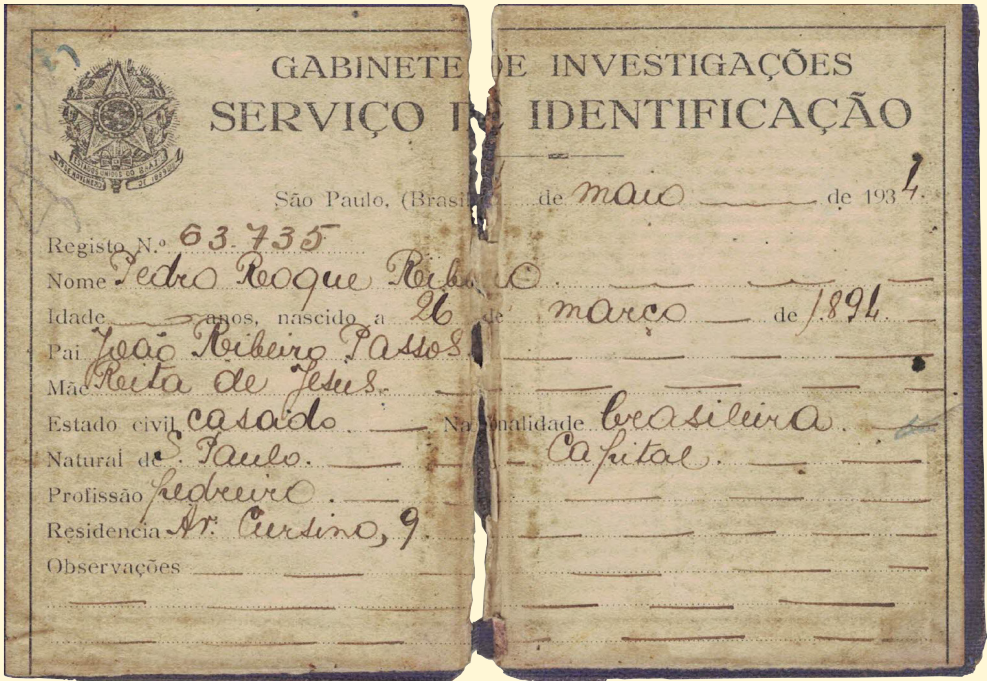 GABINETE DE INVESTIGAÇÕES
SERVIÇO DE IDENTIFICAÇÃO
ESTADOS UNIDOS DO BRAZIL
São Paulo, (Brasil de maio de 1934.
Registo N.º 63.735
Nome Pedro Roque Ribeiro
Idade anos, nascido a 26 de março de 1894.
Pai João Ribeiro Passos.
Mãe Reita de Jesus.
Estado civil casado Nacionalidade brasileira.
Natural de S. Paulo. Capital.
Profissão pedreiro.
Residencia Av. Cursino, 9.
Observações